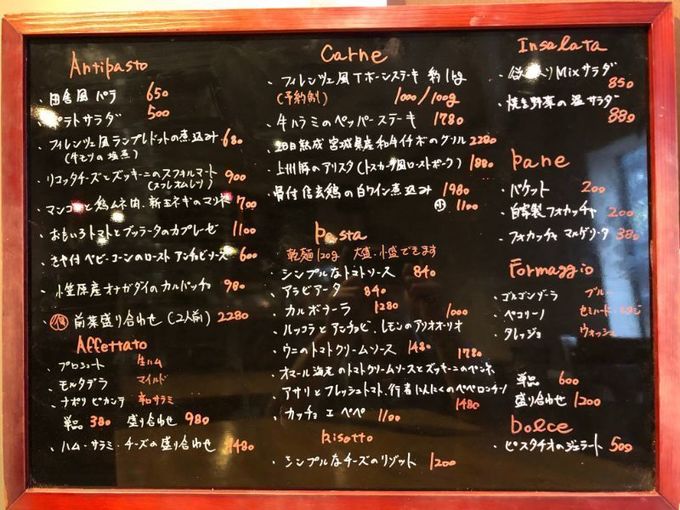 Antipasto
・田舎風パテ 650
・ポテトサラダ 500
・フィレンツェ風ランプレドットの煮込み 680
(牛モツの塩煮)
・リコッタチーズとズッキーニのスフォルマート 900
(スフレオムレツ)
・マンゴーと鶏ムネ肉、新玉ネギのマリネ 700
・おもいろトマトとブッラータのカプレーゼ 1100
・さや付ベビーコーンのロースト アンチョビソース 600
・小笠原産オナガダイのカルパッチョ 980
前菜盛り合わせ(2人前) 2280
Affettato
・プロシュート 生ハム
・モルタデラ マイルド
・ナポリ ピカンテ 辛口サラミ
単品 380 盛り合わせ 980
・ハム・サラミ・チーズの盛り合わせ 1480
Carne
・フィレンツェ風Tボーンステーキ 約1kg
(予約制) 1000/100g
・牛ハラミのペッパーステーキ 1780
・20日熟成 宮城県産和牛イチボのグリル 2280
・上州豚のアリスタ(トスカーナ風ローストポーク) 1880
・骨付信玄鶏の白ワイン煮込み 1980
小 1100
Pasta
乾麺120g 大盛・小盛できます
・シンプルなトマトソース 840
・アラビアータ 840
・カルボナーラ 1280
・ルッコラとアンチョビ、レモンのアリオオーリオ 1000
・ウニのトマトクリームソース 1480
・オマール海老のトマトクリームソースとズッキーニのペンネ 1780
・アサリとフレッシュトマト、行者にんにくのペペロンチーノ 1480
・カッチョ エ ペペ 1100
Risotto
・シンプルなチーズのリゾット 1200
Insalata
・Mixサラダ 850
・焼き野菜の温サラダ 880
Pane
・バケット 200
・自家製フォカッチャ 200
・フォカッチャ マルゲリータ 380
Formaggio
・ゴルゴンゾーラ ブルー
・ペコリーノ セミハード
・タレッジョ ウォッシュ
単品 600
盛り合わせ 1200
Dolce
・ピスタチオのジェラート 500